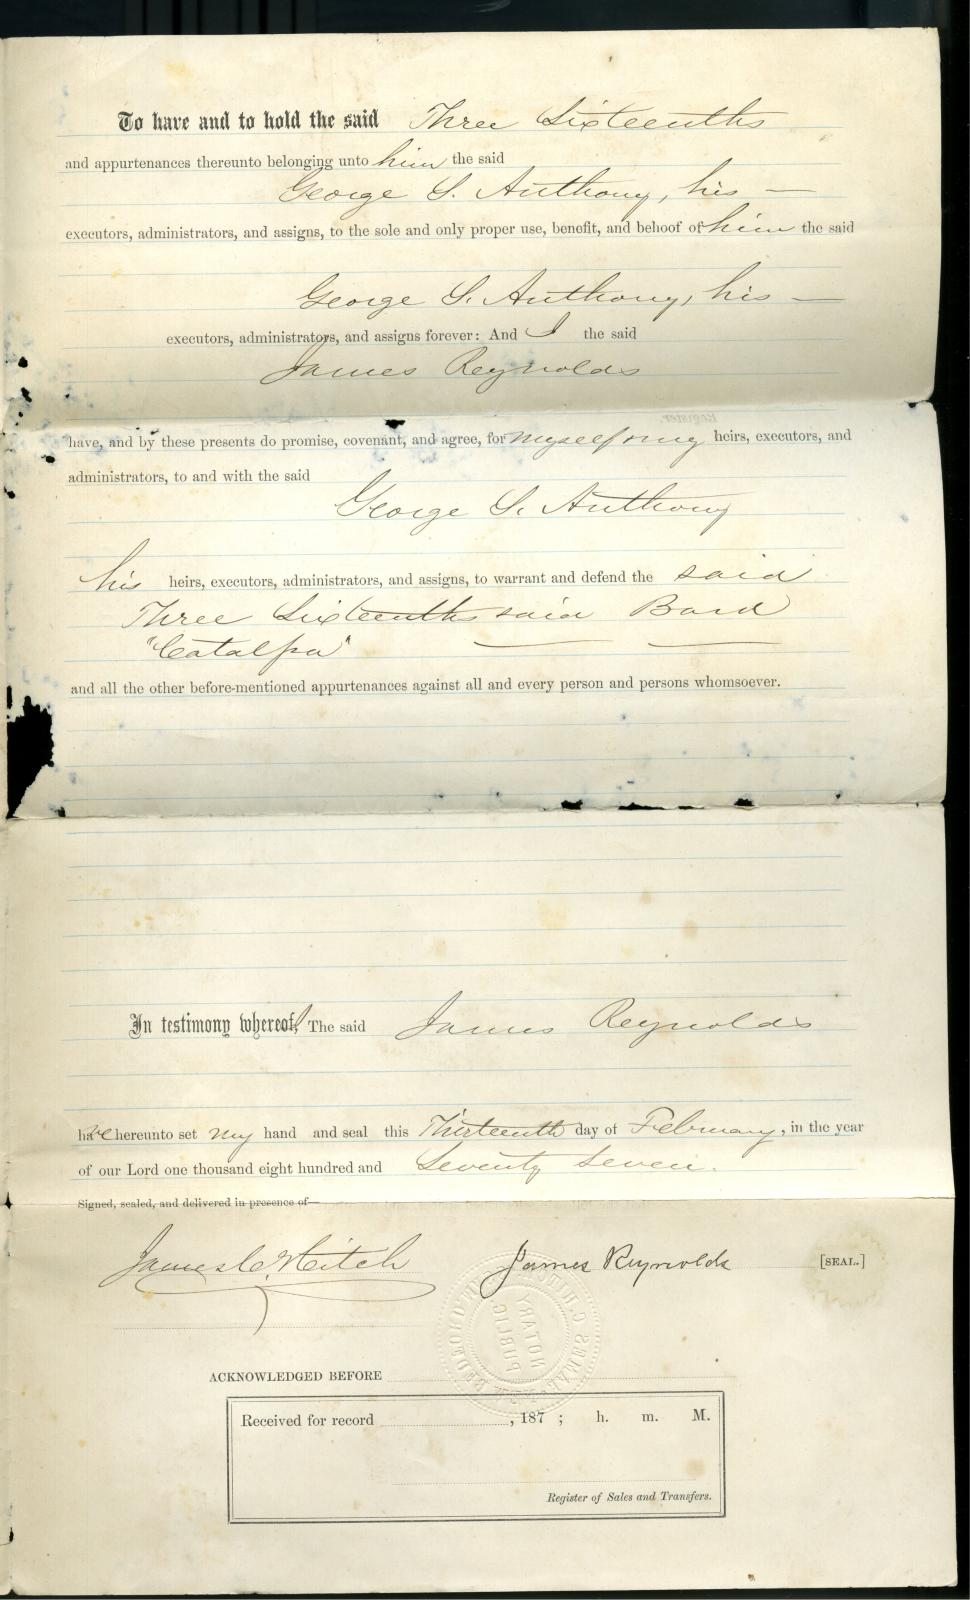 To have and to hold the said Three Sixteenths
and appurtenances thereunto belonging unto him the said
George S. Anthony, his —
executors, administrators, and assigns, to the sole and only proper use, benefit, and behoof of him the said
George S. Anthony, his —
executors, administrators, and assigns forever: And I the said
James Reynolds
Register.
have, and by these presents do promise, covenant, and agree, for myself & my heirs, executors, and
administrators, to and with the said
George S. Anthony
his heirs, executors, administrators, and assigns, to warrant and defend the said
Three Sixteenths said Bark
"Catalpa" — —
and all the other before-mentioned appurtenances against all and every person and persons whomsoever.
In testimony whereof, I The said James Reynolds
have hereunto set my hand and seal this Thirteenth day of February, in the year
of our Lord one thousand eight hundred and Seventy Seven.
Signed, sealed, and delivered in presence of—
James C. Hitch James Reynolds [SEAL.]
NOTARY PUBLIC
ACKNOWLEDGED BEFORE
Received for record , 187 ; h. m. M.
Register of Sales and Transfers.